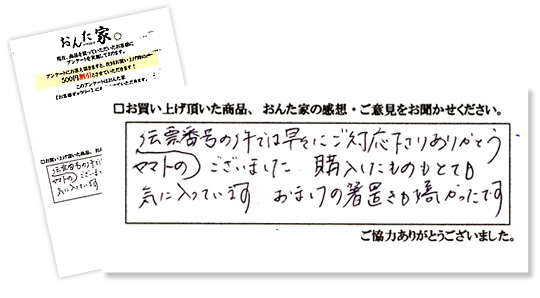 おんた家。
現在、商品を買っていただいたお客様に
アンケートを実施しております。
アンケートにお答え頂きますと、次回お買い上げ時に
500円割引とさせていただきます!
このアンケートはおんた家
□お買い上げ頂いた商品、おん
伝票番号の件で
ヤマトの ござい
気に入っています
□お買い上げ頂いた商品、おんた家の感想・ご意見をお聞かせください。
伝票番号の件では早々にご対応下さりありがとう
ヤマトの ございました 購入したものもとても
気に入っています おまけの箸置きも嬉しかったです
ご協力ありがとうございました。